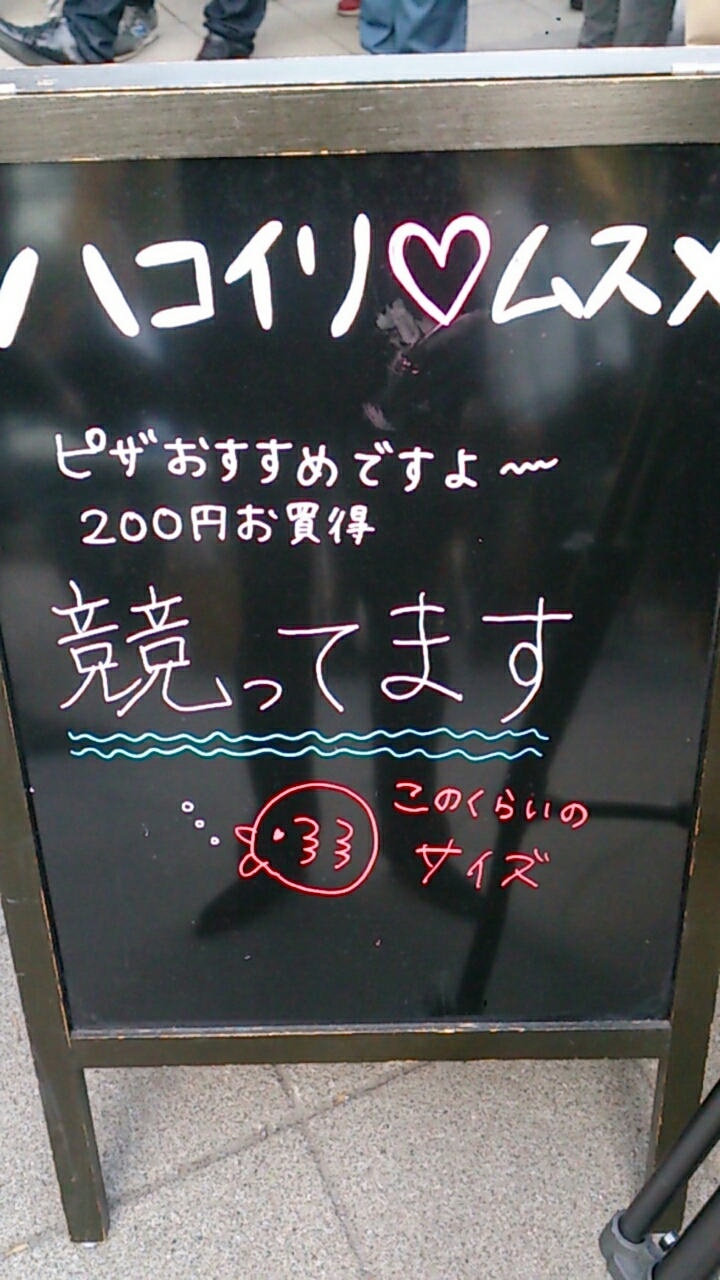 ハコイリ♡ムスメ
ピザおすすめですよ〜
200円お買得
競ってます
このくらいの
サイズ